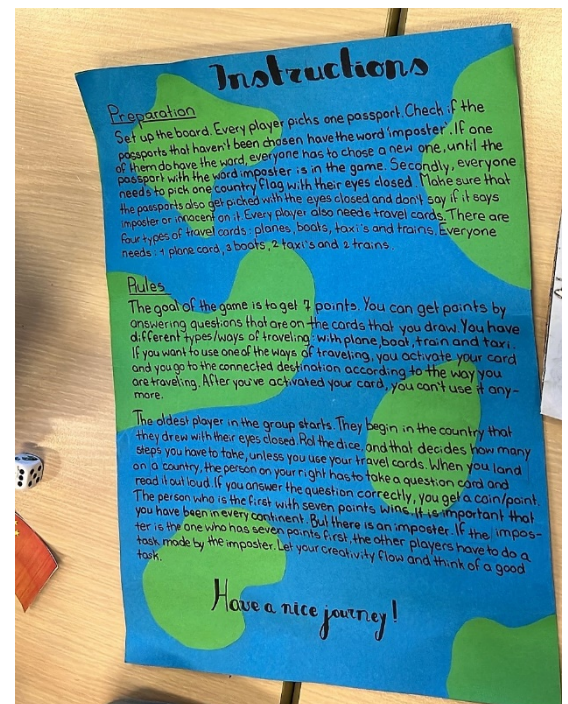 Instructions
Preparation
Set up the board. Every player picks one passport. Check if the
passports that haven't been chosen have the word 'imposter'. If one
of them do have the word, everyone has to chose a new one, until the
passport with the word imposter is in the game. Secondly, everyone
needs to pick one country flag with their eyes closed. Make sure that
the passports also get picked with the eyes closed and don't say if it says
imposter or innocent on it. Every player also needs travel cards. There are
four types of travel cards: planes, boats, taxi's and trains. Everyone
needs: 1 plane card, 3 boats, 2 taxi's and 2 trains.
Rules
The goal of the game is to get 7 points. You can get points by
answering questions that are on the cards that you draw. You have
different types/ways of traveling: with plane, boat, train and taxi.
If you want to use one of the ways of traveling, you activate your card
and you go to the connected destination according to the way you
are traveling. After you've activated your card, you can't use it any-
more.
The oldest player in the group starts. They begin in the country that
they drew with their eyes closed. Rol the dice, and that decides how many
steps you have to take, unless you use your travel cards. When you land
on a country, the person on your right has to take a question card and
read it out loud. If you answer the question correctly, you get a coin/point.
The person who is the first with seven points wins. It is important that
you have been in every continent. But there is an imposter. If the impos-
ter is the one who has seven points first, the other players have to do a
task made by the imposter. Let your creativity flow and think of a good
task.
Have a nice journey!